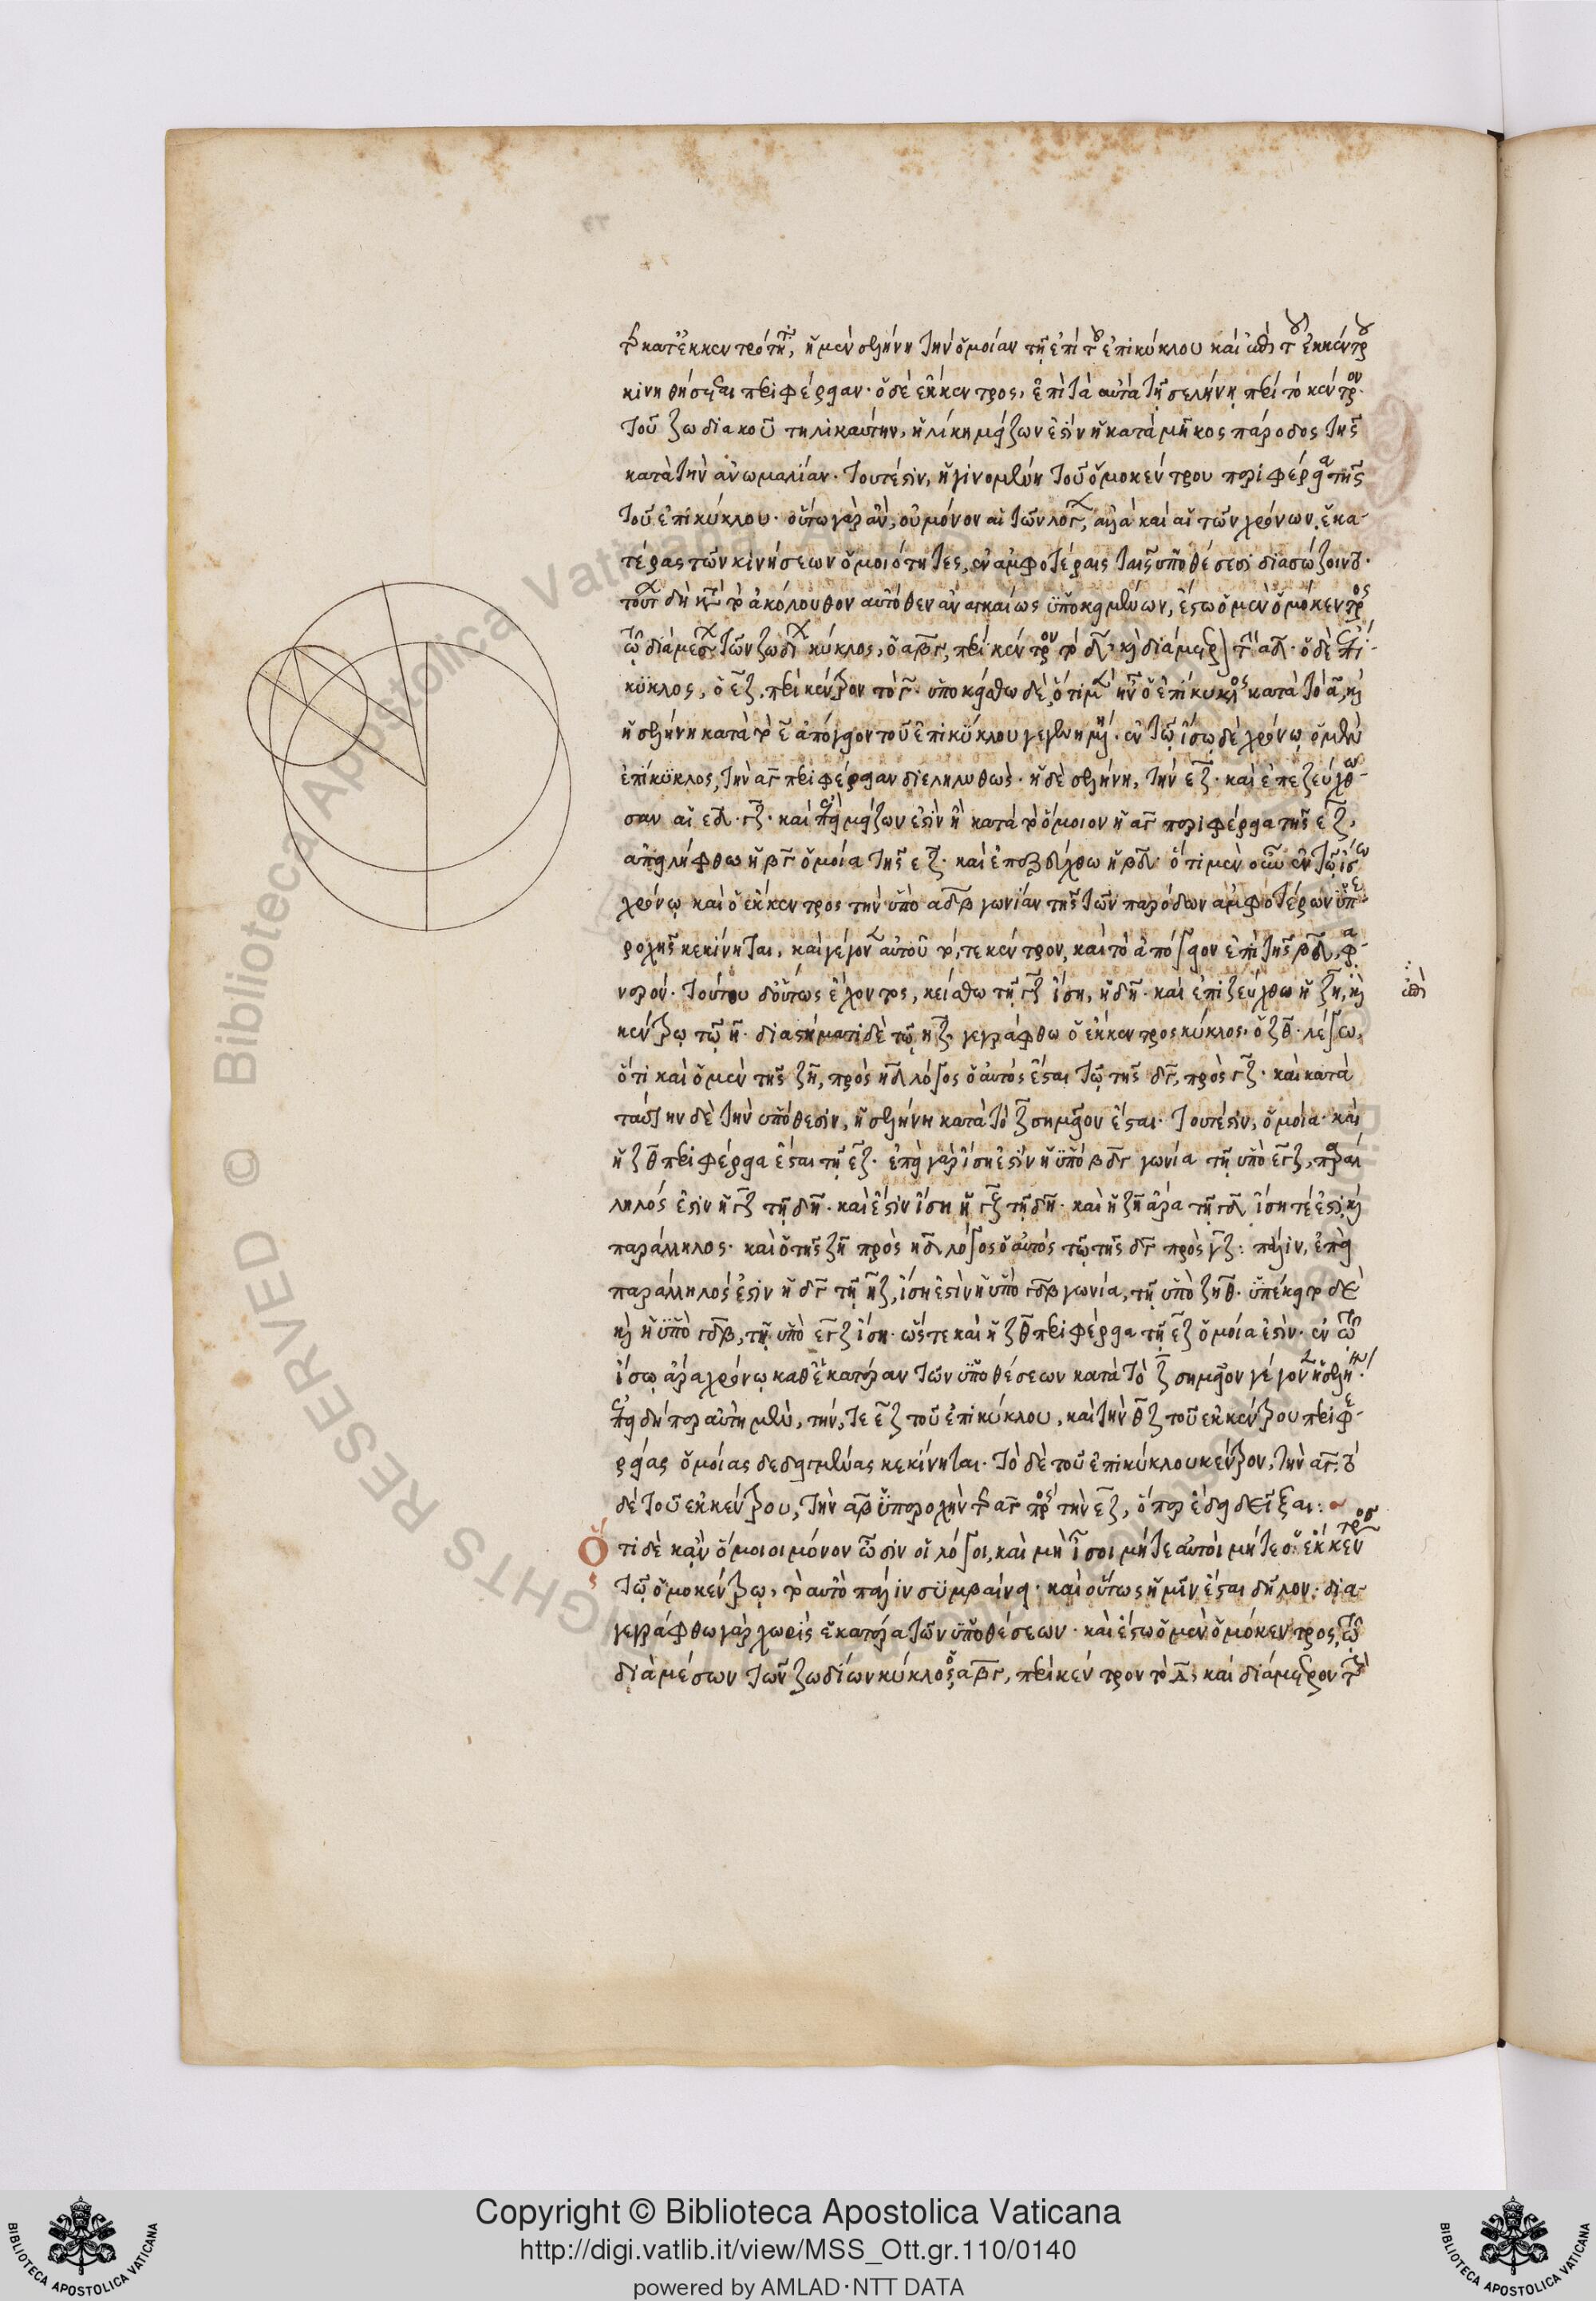 κατ' ἐκκεντρότητα, ἡ μὲν σελήνη τὴν ὁμοίαν τῇ ἐπὶ τοῦ ἐπικύκλου καὶ ἐπὶ τοῦ ἐκκέντρου
κινηθήσεται περιφέρειαν· ὁ δὲ ἔκκεντρος, ἐπὶ τὰ αὐτὰ τῇ σελήνῃ περὶ τὸ κέντρον
τοῦ ζωδιακοῦ τηλικαύτην, ἡλίκη μείζων ἐστὶν ἡ κατὰ μῆκος πάροδος τῆς
κατὰ τὴν ἀνωμαλίαν· τουτέστιν, ἡ γινομένη τοῦ ὁμοκέντρου περιφέρεια τῆς
τοῦ ἐπικύκλου· οὕτω γὰρ ἂν, οὐ μόνον αἱ τῶν λόγων, ἀλλὰ καὶ αἱ τῶν χρόνων ἑκα-
τέρας τῶν κινήσεων ὁμοιότητες, ἐν ἀμφοτέραις ταῖς ὑποθέσεσι διασώζοιντο·
τούτων δὴ κατὰ τὸ ἀκόλουθον αὐτόθεν ἀναγκαίως ὑποκειμένων, ἔστω ὁ μὲν ὁμόκεντρος
τῷ διὰ μέσων τῶν ζωδίων κύκλος, ὁ αβγ, περὶ κέντρον τὸ δ καὶ διάμετρον τὴν αδ· ὁ δὲ ἐπί-
κυκλος, ὁ εζ, περὶ κέντρον τὸ γ· ὑποκείσθω δὲ, ὅτι μὲν ἦν ὁ ἐπίκυκλος κατὰ τὸ α, καὶ
ἡ σελήνη κατὰ τὸ ε ἀπόγειον τοῦ ἐπικύκλου γεγενημένη· ἐν τῷ ἴσῳ δὲ χρόνῳ ὁ μὲν
ἐπίκυκλος, τὴν αγ περιφέρειαν διεληλυθὼς· ἡ δὲ σελήνη, τὴν εζ· καὶ ἐπεζεύχθω-
σαν αἱ εδ· γζ· καὶ ἐπεὶ μείζων ἐστὶν ἢ κατὰ τὸ ὅμοιον ἡ αγ περιφέρεια τῆς εζ,
ἀπειλήφθω ἡ βγ ὁμοία τῆς εζ· καὶ ἐπεζεύχθω ἡ βδ· ὅτι μὲν οὖν ἐν τῷ ἴσῳ
χρόνῳ καὶ ὁ ἔκκεντρος τὴν ὑπὸ αδβ γωνίαν τῆς τῶν παρόδων ἀμφοτέρων ὑπε-
ροχῆς κεκίνηται, καὶ γέγονεν αὐτοῦ τό, τε κέντρον, καὶ τὸ ἀπόγειον ἐπὶ τῆς βδ, φα-
νερόν· τούτου δ' οὕτως ἔχοντος, κείσθω τῇ γζ ἴση, ἡ δη· καὶ ἐπεζεύχθω ἡ ζη, καὶ
κέντρῳ τῷ η· διαστήματι δὲ τῷ ηζ, γεγράφθω ὁ ἔκκεντρος κύκλος, ὁ ζθ· λέγω,
ὅτι καὶ ὁ μὲν τῆς ζη, πρὸς ηδ λόγος ὁ αὐτὸς ἔσται τῷ τῆς δγ, πρὸς γζ· καὶ κατὰ
ταύτην δὲ τὴν ὑπόθεσιν, ἡ σελήνη κατὰ τὸ ζ σημεῖον ἔσται· τουτέστιν, ὁμοία· καὶ
ἡ ζθ περιφέρεια ἔσται τῇ εζ· ἐπεὶ γὰρ ἴση ἐστὶν ἡ ὑπὸ βδγ γωνία τῇ ὑπὸ εγζ, παράλ
ληλός ἐστιν ἡ γζ τῇ δη· καὶ ἔστιν ἴση ἡ γζ τῇ δη· καὶ ἡ ζη ἄρα τῇ γδ ἴση τέ ἐστι καὶ
παράλληλος· καὶ ὁ τῆς ζη πρὸς ηδ λόγος ὁ αὐτὸς τῷ τῆς δγ πρὸς γζ: πάλιν, ἐπεὶ
παράλληλός ἐστιν ἡ δγ τῇ ηζ, ἴση ἐστὶν ἡ ὑπὸ γδβ γωνία, τῇ ὑπὸ ζηθ· ὑπέκειτο δὲ
καὶ ἡ ὑπὸ γδβ, τῇ ὑπὸ εγζ ἴση· ὥστε καὶ ἡ ζθ περιφέρεια τῇ εζ ὁμοία ἐστὶν· ἐν τῷ
ἴσῳ ἄρα χρόνῳ καθ' ἑκατέραν τῶν ὑποθέσεων κατὰ τὸ ζ σημεῖον γέγονεν ἡ σελήνη·
ἐπειδήπερ αὐτὴ μὲν, τήν, τε εζ τοῦ ἐπικύκλου, καὶ τὴν θζ τοῦ ἐκκέντρου περιφε-
ρείας ὁμοίας δεδειγμένας κεκίνηται· τὸ δὲ τοῦ ἐπικύκλου κέντρον, τὴν αγ· τὸ
δὲ τοῦ ἐκκέντρου, τὴν αβ ὑπεροχὴν τῆς αγ πρὸς τὴν εζ, ὅπερ ἔδει δεῖξαι:
Ὅτι δὲ κἂν ὅμοιοι μόνον ὦσιν οἱ λόγοι, καὶ μὴ ἴσοι μήτε αὐτοὶ μήτε ὁ ἔκκεντρος
τῷ ὁμοκέντρῳ, τὸ αὐτὸ πάλιν συμβαίνει· καὶ οὕτως ἡμῖν ἔσται δῆλον· δια-
γεγράφθω γὰρ χωρὶς ἑκατέρα τῶν ὑποθέσεων· καὶ ἔστω ὁ μὲν ὁμόκεντρος, τῷ
διὰ μέσων τῶν ζωδίων κύκλος, ὁ αβγ, περὶ κέντρον τὸ δ, καὶ διάμετρον τὴν
Copyright © Biblioteca Apostolica Vaticana
http://digi.vatlib.it/view/MSS_Ott.gr.110/0140
powered by AMLAD·NTT DATA
BIBLIOTECA APOSTOLICA VATICANA
BIBLIOTECA APOSTOLICA VATICANA